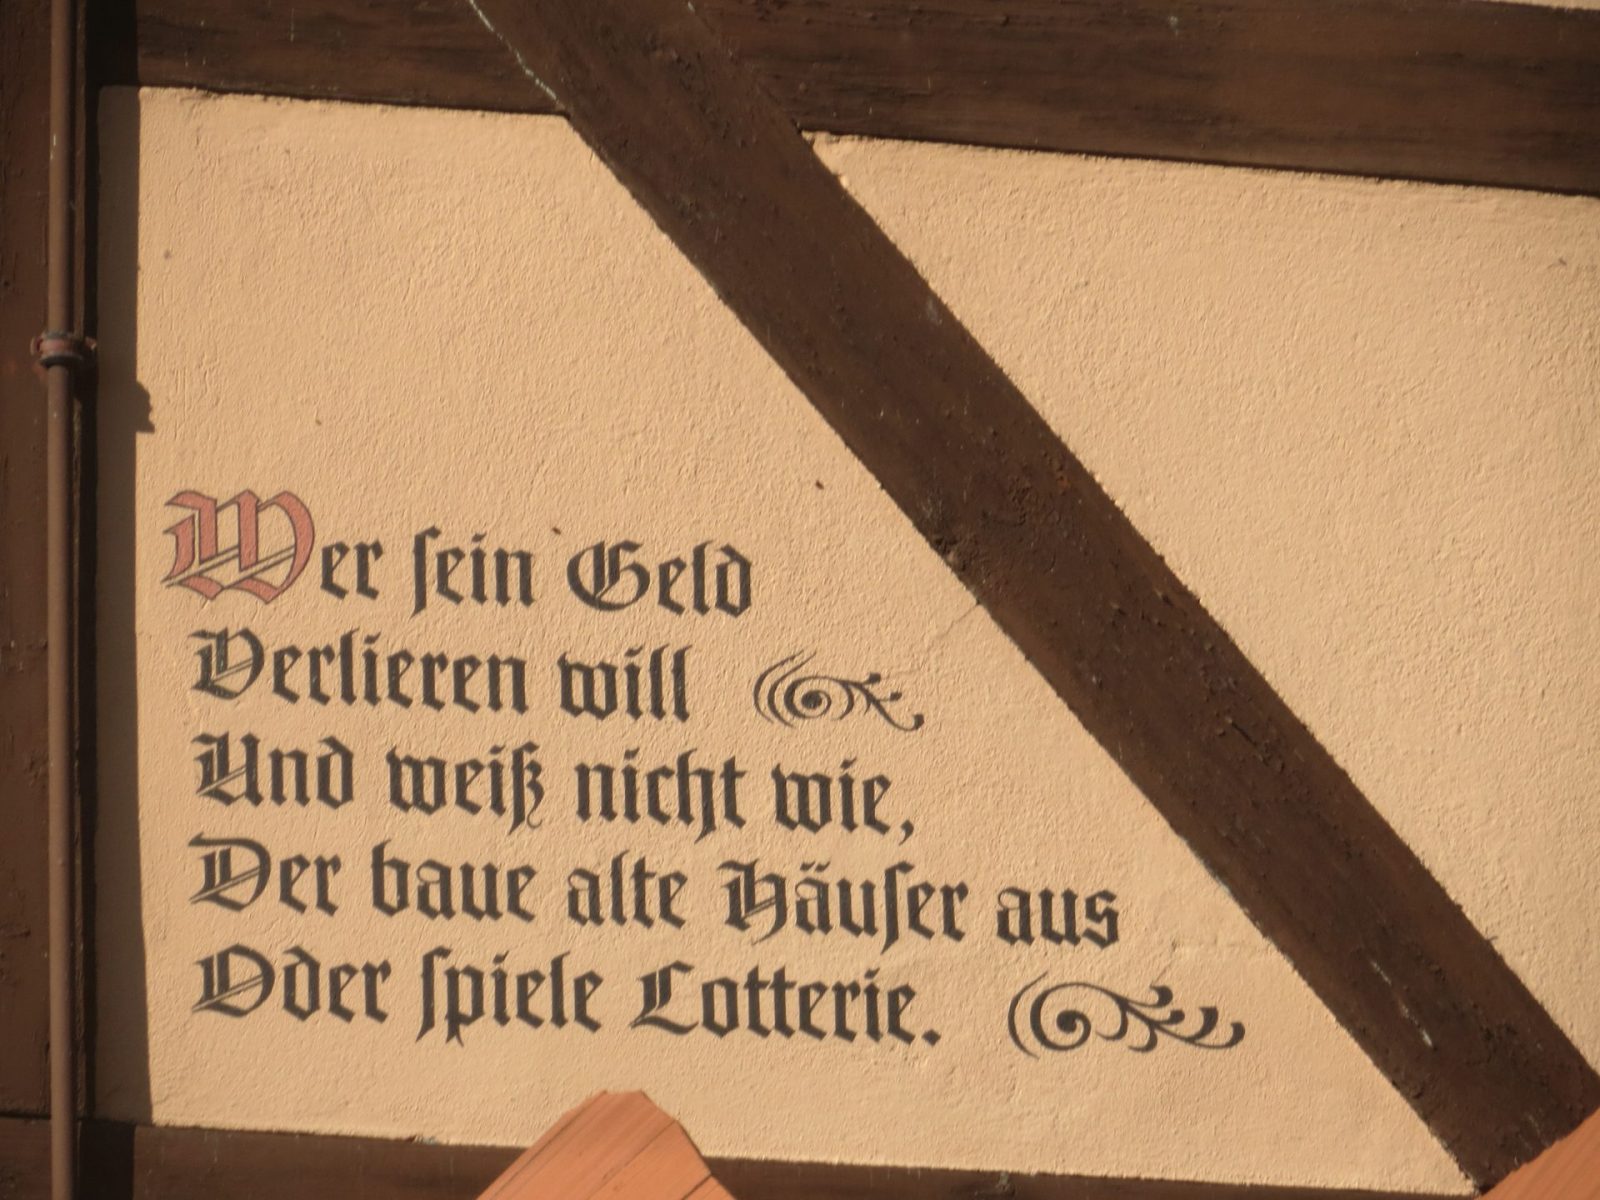 Wer sein Geld
Verlieren will
Und weiß nicht wie,
Der baue alte Häuser aus
Oder spiele Lotterie.